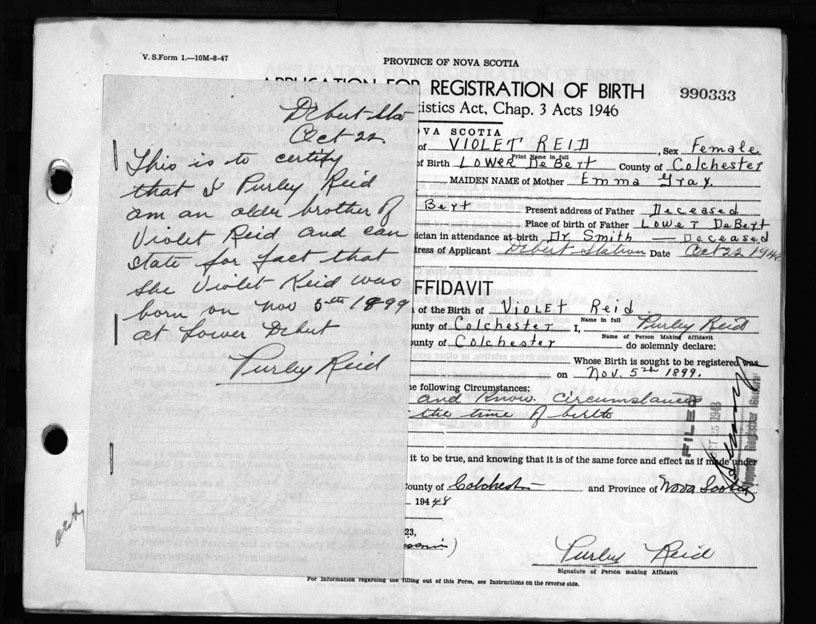 V. S. Form 1.—10M-8-47
PROVINCE OF NOVA SCOTIA
APPLICATION FOR REGISTRATION OF BIRTH
990333
istics Act, Chap. 3 Acts 1946
OVA SCOTIA
of VIOLET REID, Sex Female
Print Name in full
of Birth LOWER DeBert County of Colchester
MAIDEN NAME of Mother Emma Gray.
Bert Present address of Father Deceased
Place of birth of Father Lower DeBert
ician in attendance at birth Dr Smith — Deceased
ress of Applicant Debert Station Date Oct 22 194
Debert Sta
Oct 22
This is to certify
that I Purley Reid
am an older brother of
Violet Reid and can
state for fact that
she Violet Reid was
born on Nov 5th 1899
at Lower Debert
Purley Reid
FFIDAVIT
of the Birth of Violet Reid
Name in full
ounty of Colchester I, Purley Reid
Name of Person Making Affidavit
ounty of Colchester do solemnly declare:
Whose Birth is sought to be registered was
on Nov. 5th 1899.
e following Circumstances:
and know circumstances
the time of birth
it to be true, and knowing that it is of the same force and effect as if made under
County of Colchester and Province of Nova Scotia
194 48
23,
Purley Reid
Signature of Person making Affidavit
For information regarding the filling out of this Form, see Instructions on the reverse side.
FILED